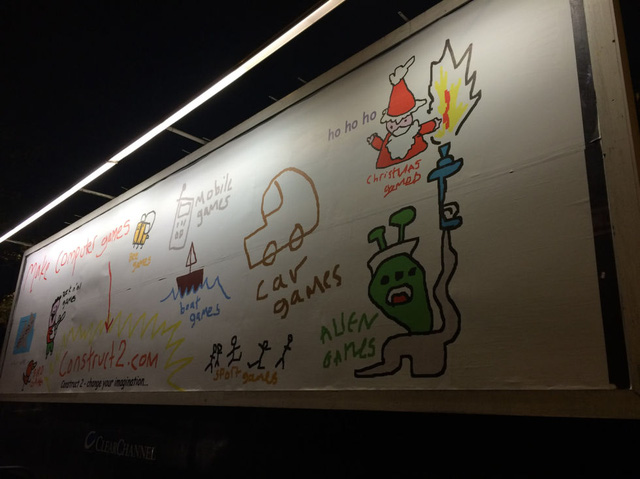 Make Computer games
bee games
Mobile
games
ho ho ho
Christmas
games
boat
games
car
games
Construct2.com
Construct 2 - change your imagination...
sport games
ALIEN
GAMES
CLEARCHANNEL